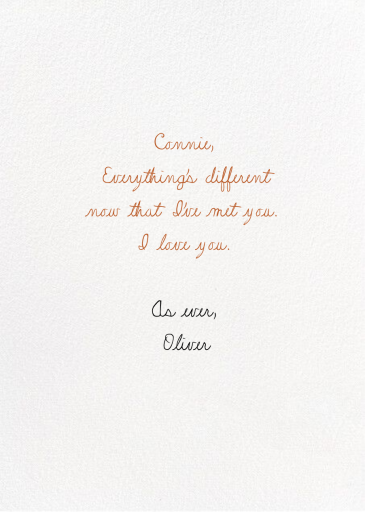 Connie,
Everything's different
now that I've met you.
I love you.
As ever,
Oliver